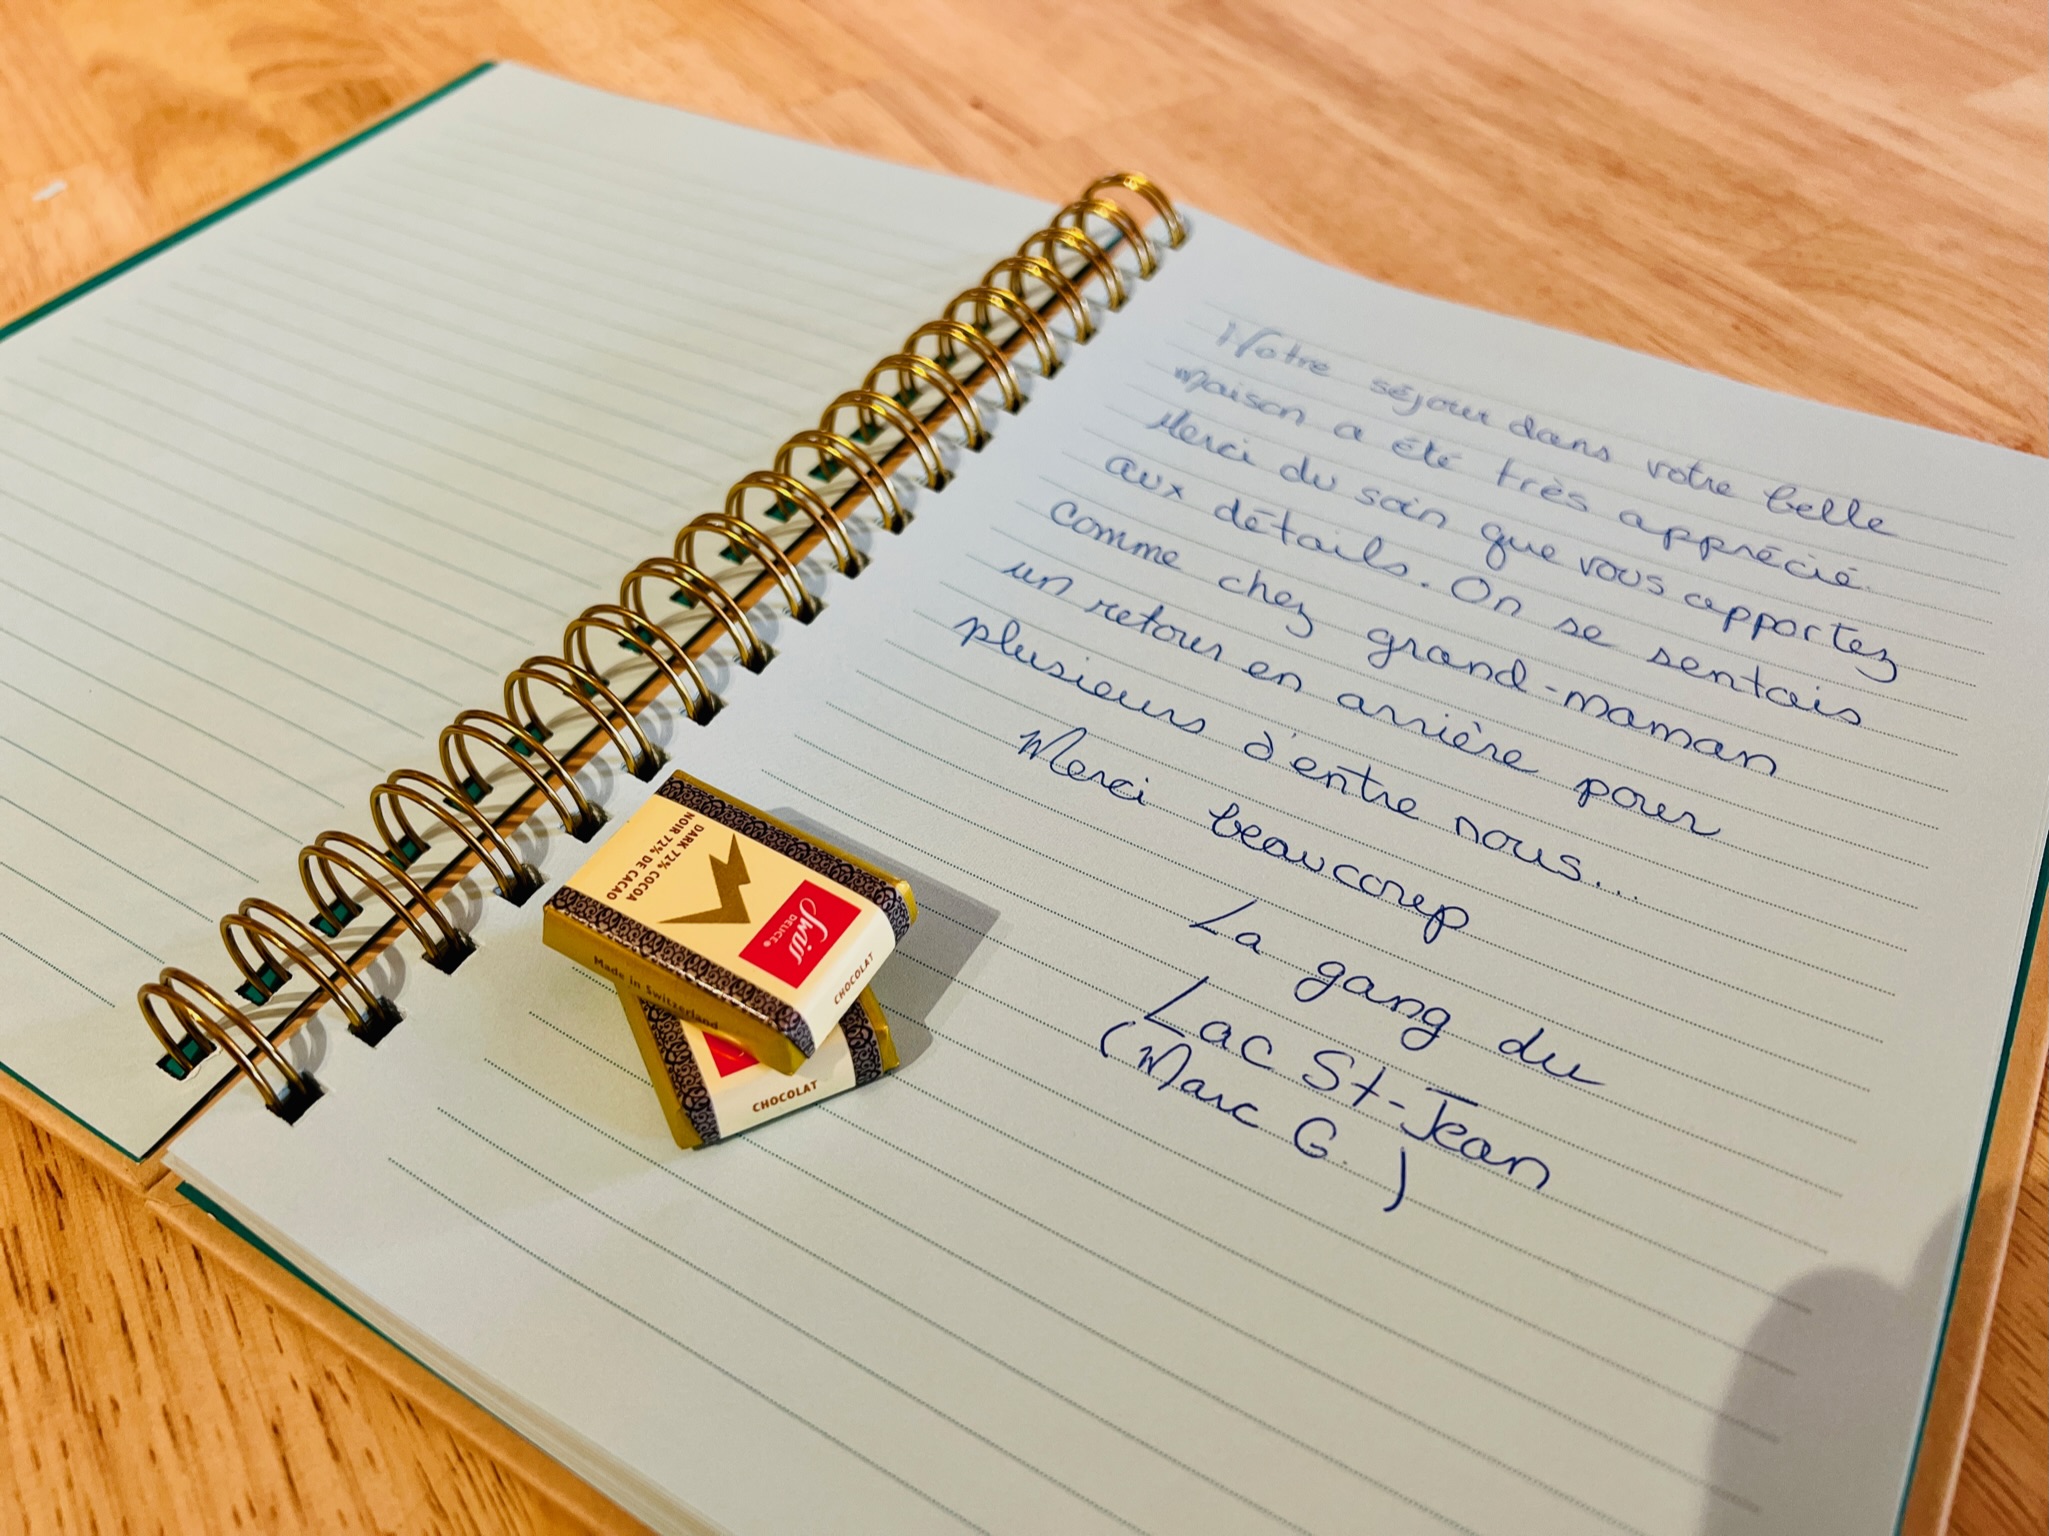 Notre séjour dans votre belle
maison a été très apprécié.
Merci du soin que vous apportez
aux détails. On se sentais
comme chez grand-maman
un retour en arrière pour
plusieurs d'entre nous...
Merci beaucoup
La gang du
Lac St-Jean
(Marc G.)
DARK 72% COCOA
NOIR 72% DE CACAO
Swiss
DELICE®
CHOCOLAT
Made in Switzerland
CHOCOLAT